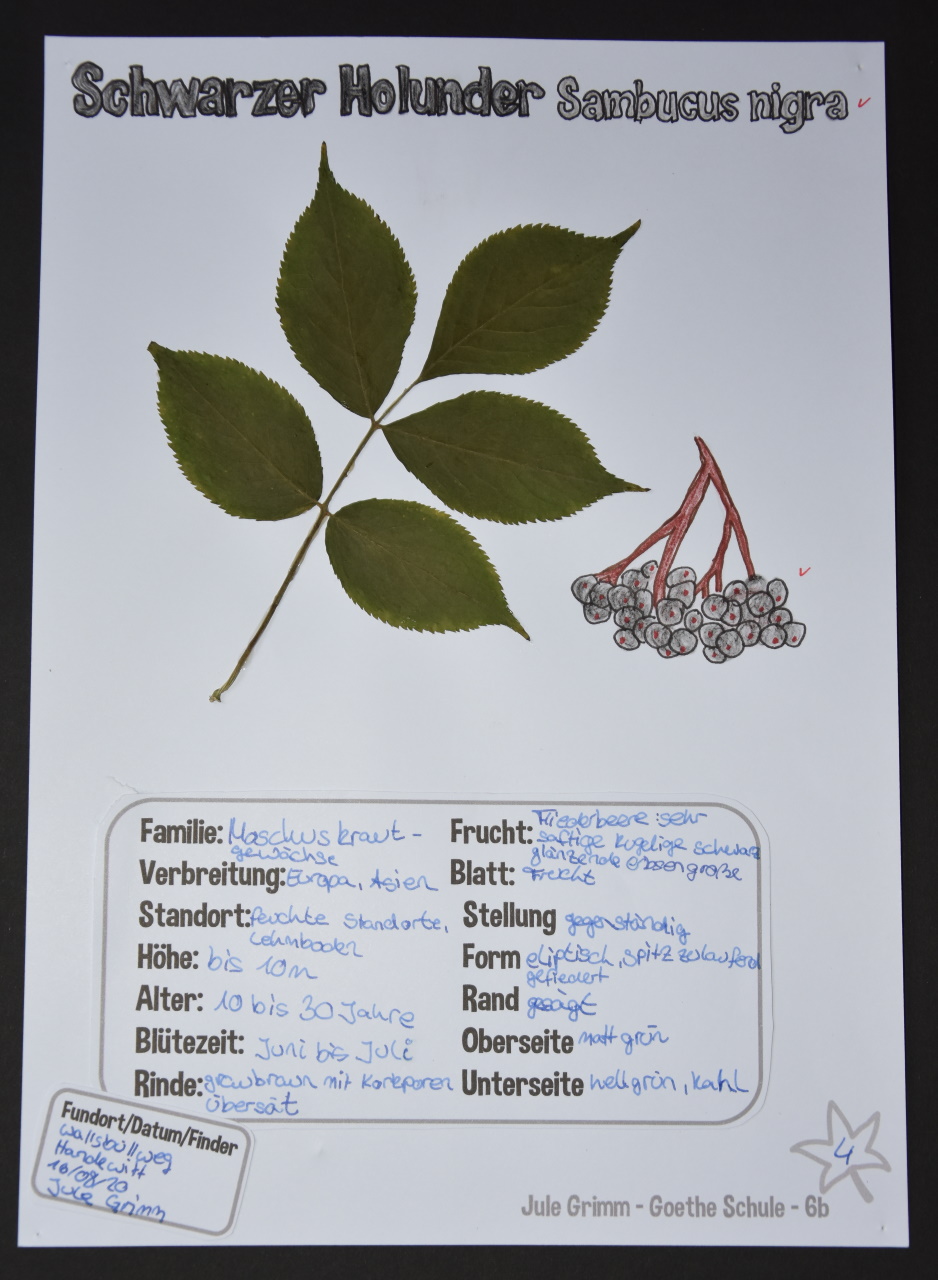 Schwarzer Holunder Sambucus nigra
Familie: Moschuskraut-
gewächse
Verbreitung: Europa, Asien
Standort: feuchte Standorte,
Lehmboden
Höhe: bis 10m
Alter: 10 bis 30 Jahre
Blütezeit: Juni bis Juli
Rinde: graubraun mit Korkporen
übersät
Frucht: Fliederbeere: sehr
saftige kugelige schwarz
glänzende erbsengroße
Frucht
Blatt:
Stellung gegenständig
Form eliptisch, spitz zulaufend
gefiedert
Rand gesägt
Oberseite matt grün
Unterseite hellgrün, kahl
Fundort/Datum/Finder
Wallsbüllweg
Handewitt
16/08/20
Jule Grimm
4
Jule Grimm - Goethe Schule - 6b